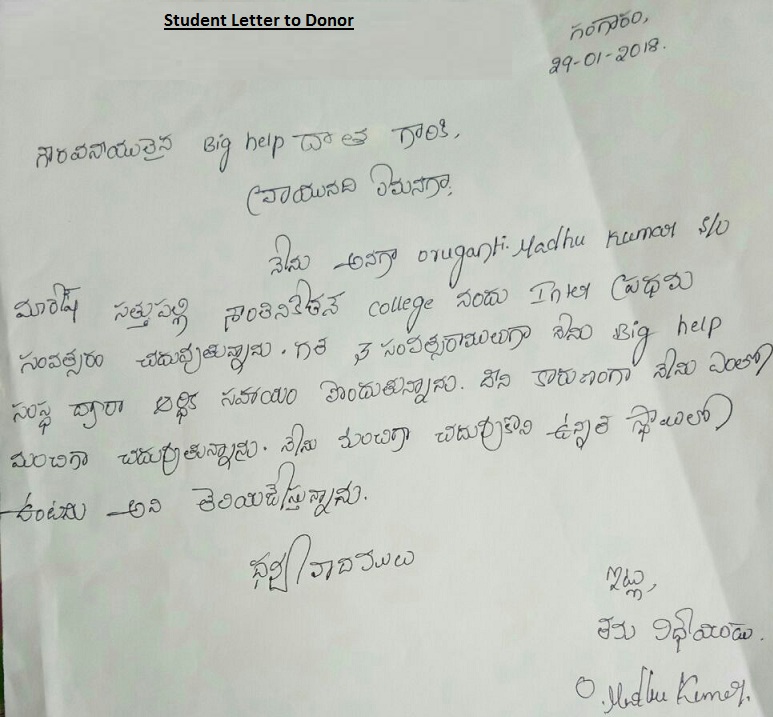 Student Letter to Donor
గంగారం,
29-01-2018.
గౌరవనీయులైన Big help దాత గారికి,
వ్రాయునది ఏమనగా,
నేను అనగా oruganti. Madhu Kumar S/o
సత్తుపల్లి శాంతినికేతన్ college నందు Inter ప్రథమ
సంవత్సరం చదువుతున్నాను. గత సంవత్సరాములుగా నేను Big help
సంస్థ ద్వారా ఆర్థిక సహాయం పొందుతున్నాను. దీని కారణంగా నేను ఎంతో
మంచిగా చదువుతున్నాను. నేను మంచిగా చదువుకొని ఉన్నత స్థాయిలో
ఉంటను అని తెలియజేస్తున్నాను.
ధన్యవాదములు
ఇట్లు,
తమ విధేయుడు.
O. Madhu Kumar.